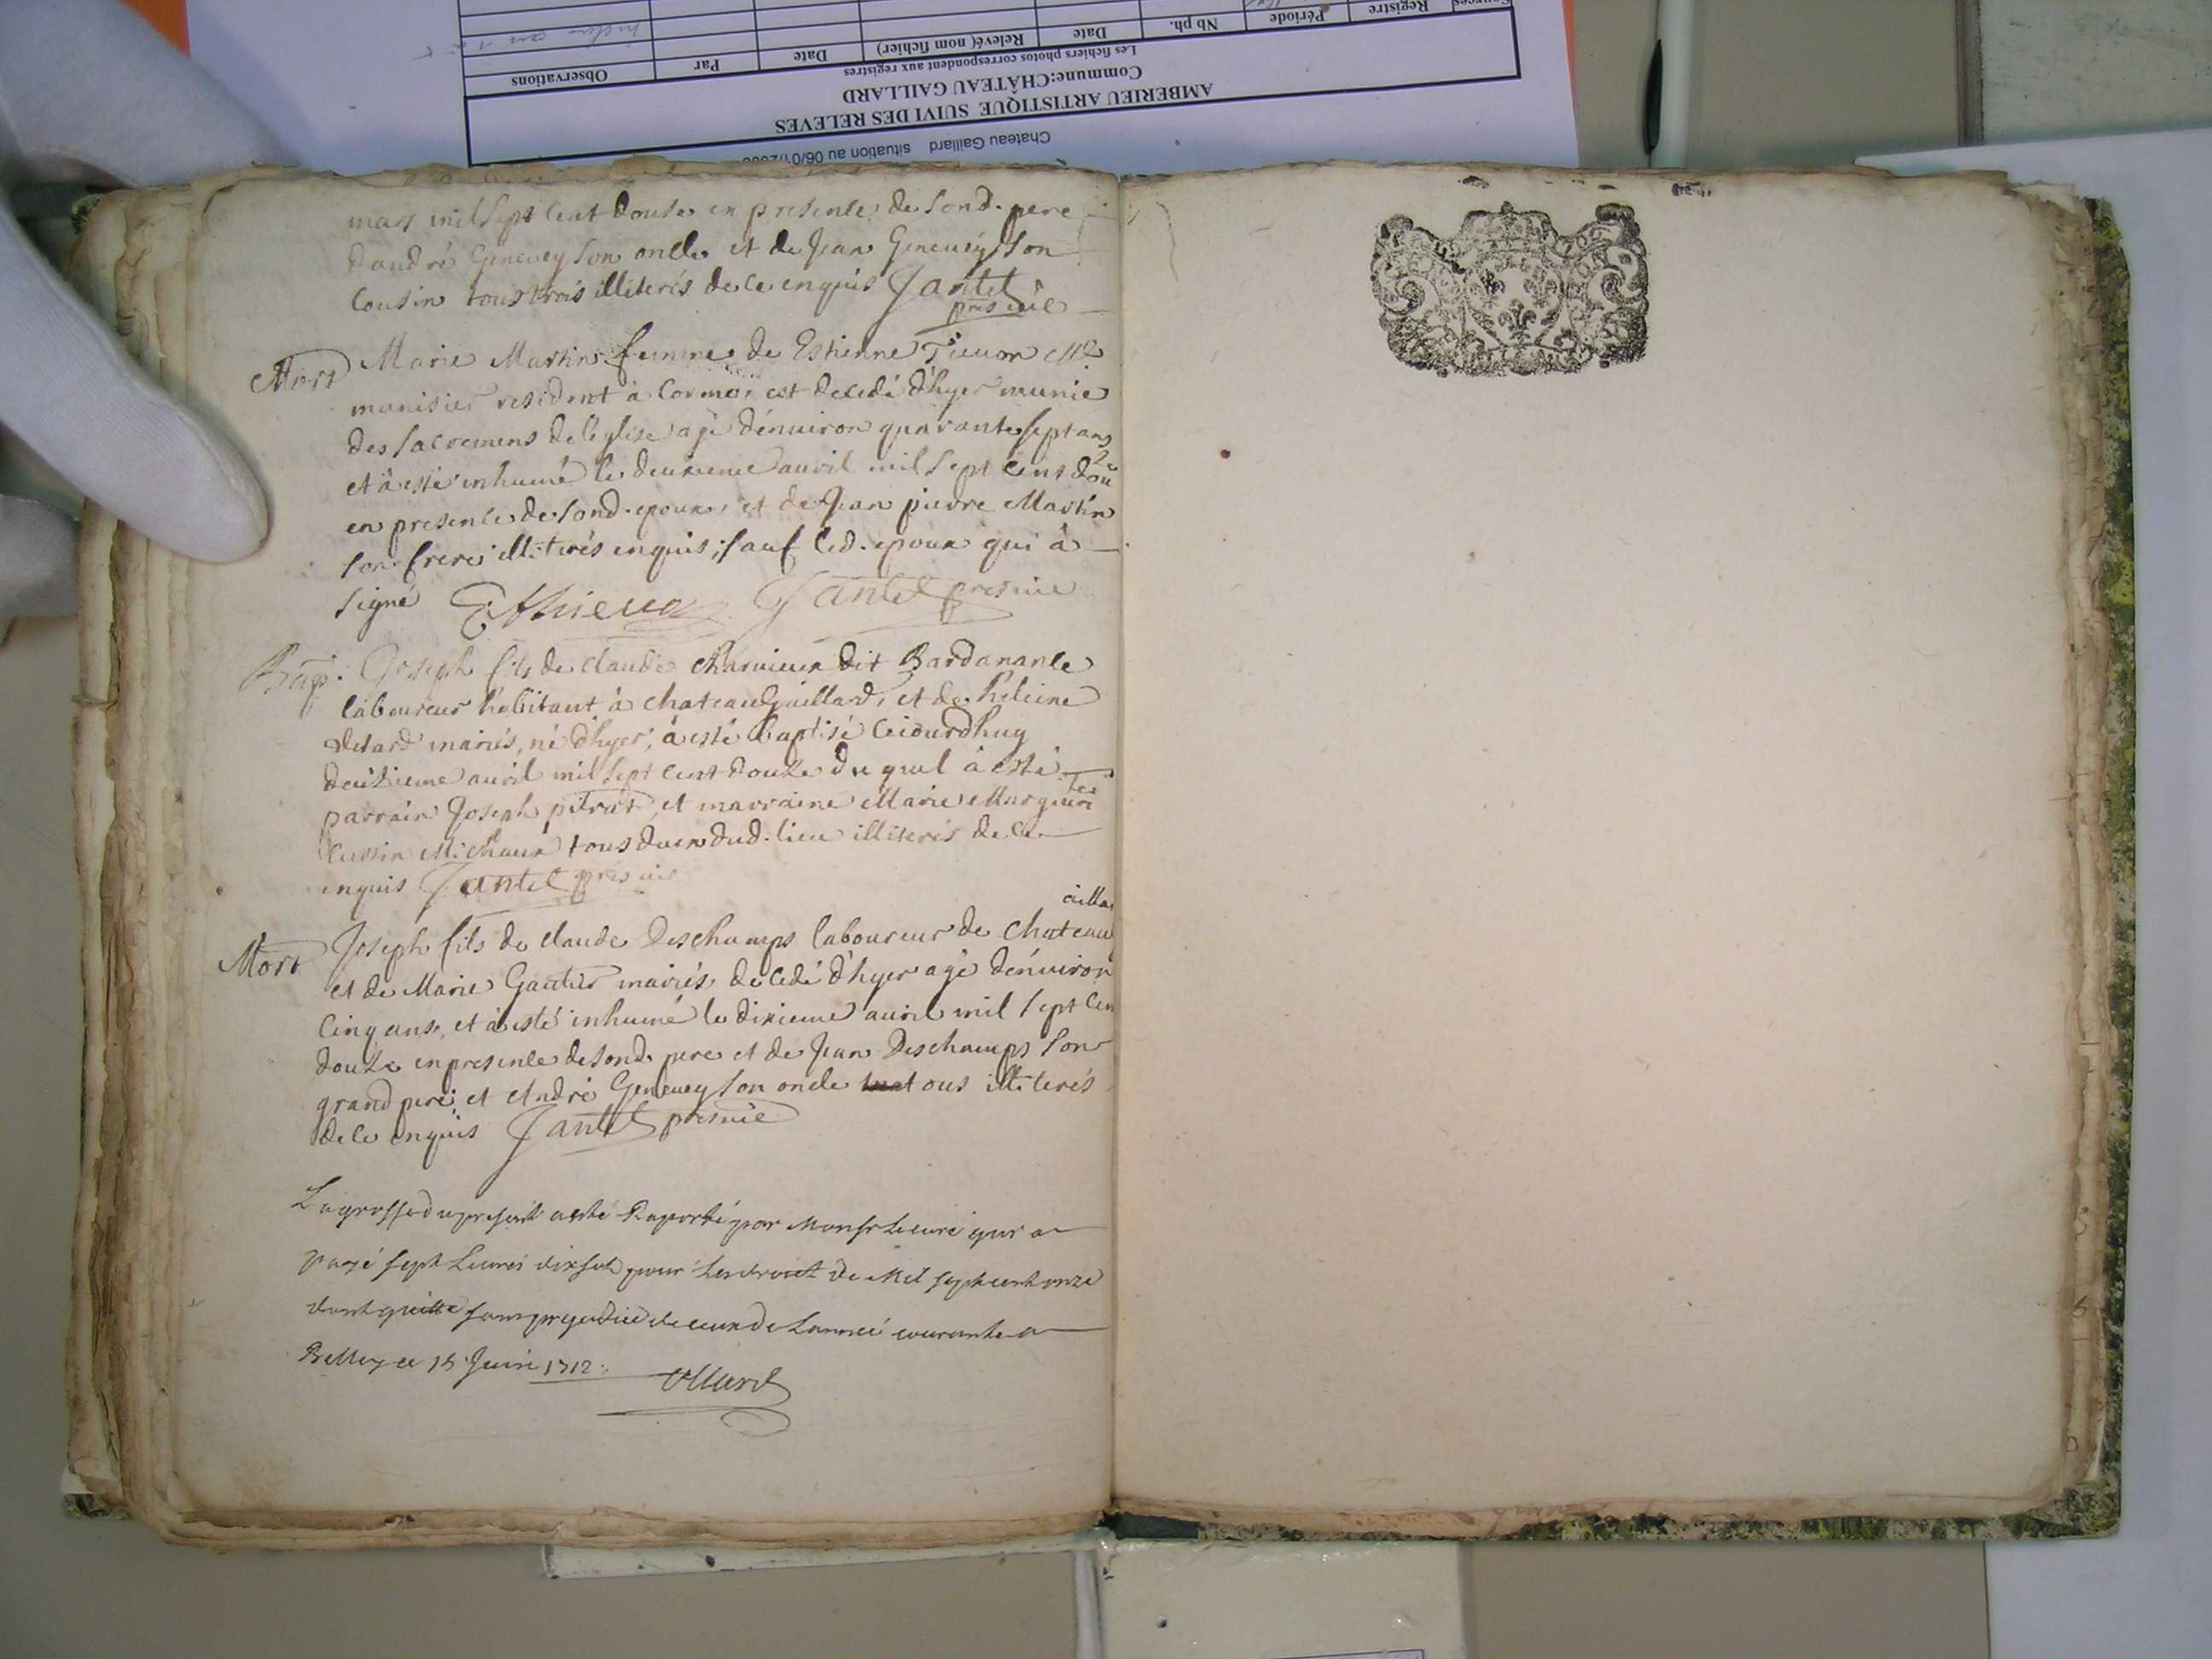 Chateau Gaillard situation au 06/01/2
AMBERIEU ARTISTIQUE SUIVI DES RELEVES
Commune:CHÂTEAU GAILLARD
Les fichiers photos correspondent aux registres
Sources Registre Période Nb ph. Date Relevé( nom fichier) Date Par Observations
mars mil sept cent douse en presence de sond. pere
d'andré Geneuey son oncle et de Jean Geneuey son
cousin tous trois illiterés de ce enquis Jantet
Mort Marie Martin femme de Estienne
munisier resident à Cormoz est decedé d'hyer munie
des sacremens de l'eglise agé d'enuiron quarante sept ans
et à esté inhumé le deuxieme auril mil sept cent dou
en presence de sond. epoux, et de Jean pierre Martin
son frere illiterés enquis; sauf led. epoux qui à
signé E. thieuo Jantet
Bap. Joseph fils de claude charuieux dit Bardanance
laboureur habitant à chateaugaillard, et de heleine
mariés, né d'hyer, à esté baptisé ceiourdhuy
deusieme auril mil sept cent douze du quel à esté
parrain Joseph pitrat, et marraine Marie Margueri
te
Michaux tous deux dud. lieu illiterés de ce
enquis Jantet
aillar
Mort Joseph fils de claude Deschamps laboureur de chateau
et de Marie Gautier mariés decedé d'hyer agé d'enuiron
cinq ans, et à esté inhumé le dixieme auril mil sept cen
douze en presence de sond. pere et de Jean Deschamps son
grand pere, et André Geneuey son oncle tous illiterés
de ce enquis Jantet
La grosse du present a esté Raporté par Monsr le curé qui a
payé sept Liures dix sols pour les droict de Mil sept cent onze
dont quitte sans prejudice de ceux de Lannée courante a
Belley ce 15 Juin 1712.